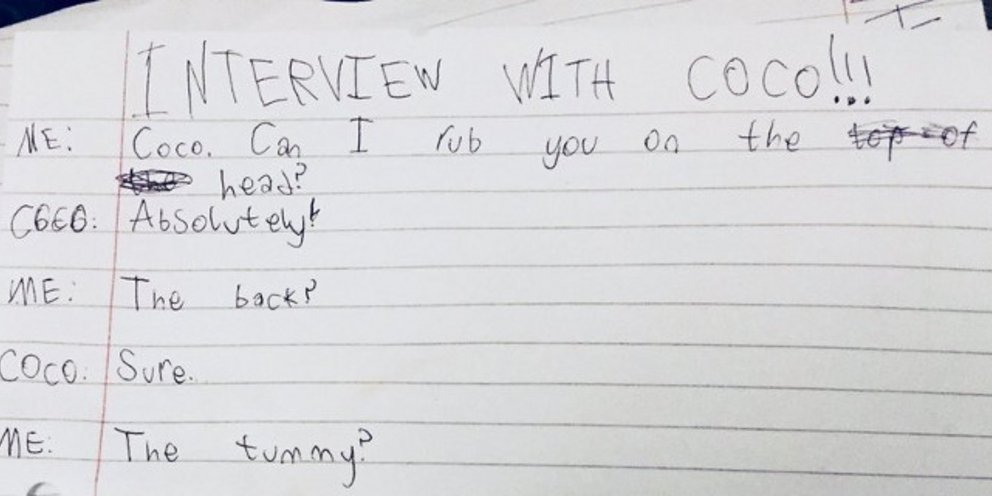 INTERVIEW WITH COCO!!!
ME: Coco. Can I rub you on the top of
the head?
COCO: Absolutely!
ME: The back?
COCO: Sure.
ME: The tummy?